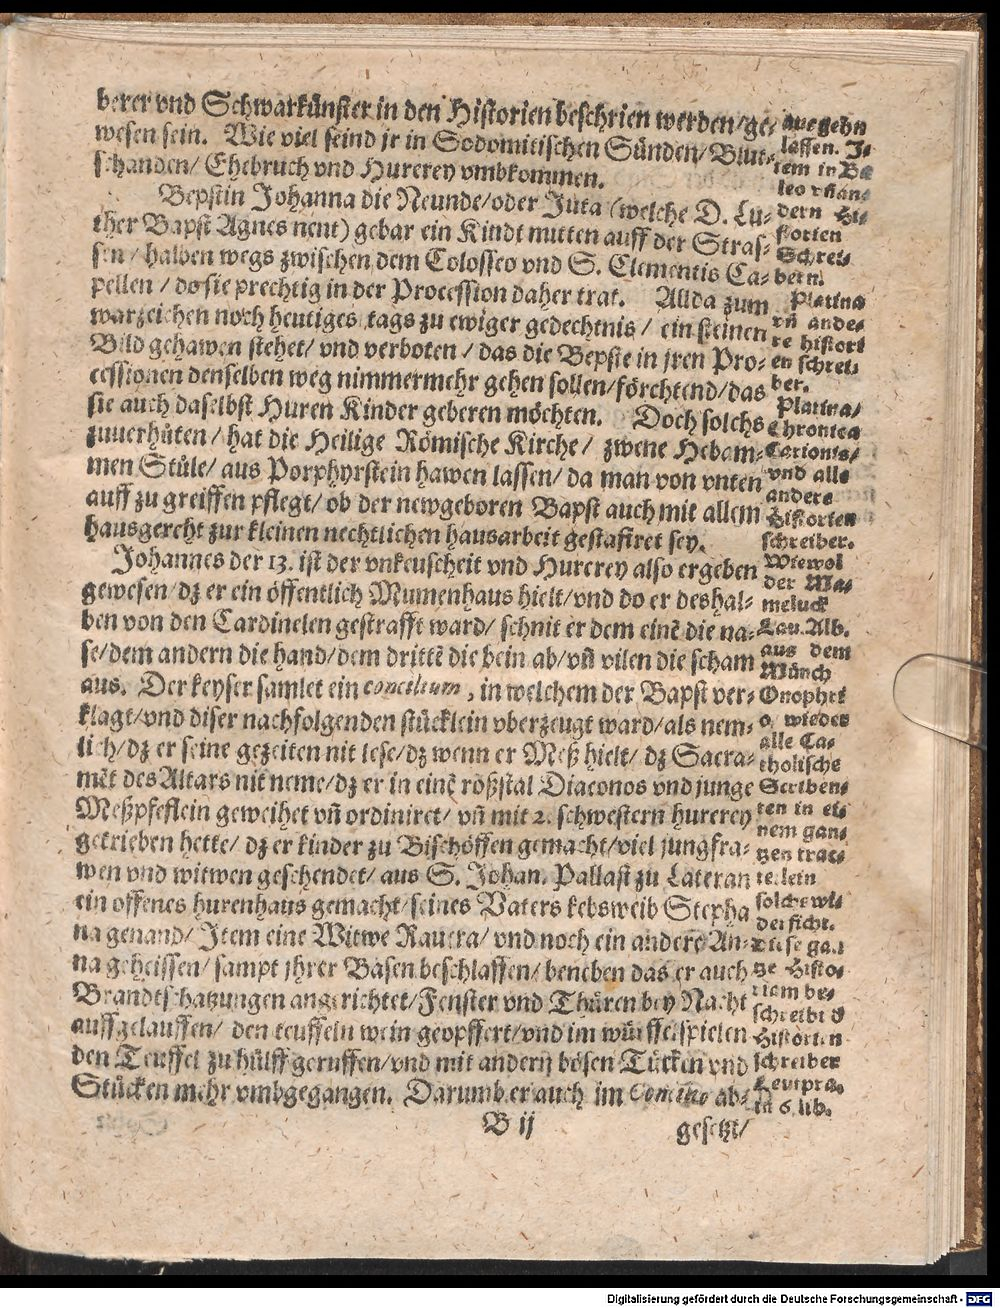 berer vnd Schwartkünster in den Historien beschrien werden/ge-
wesen sein. Wie viel seind jr in Sodomitischen Sünden/Blut-
schanden/ Ehebruch vnd Hurerey vmbkommen.
Bepstin Johanna die Neunde/oder Juta (welche D. Lu-
ther Bapst Agnes nent) gebar ein Kindt mitten auff der Stras-
sen/ halben wegs zwischen dem Colosseo vnd S. Clementis Ca-
pellen / do sie prechtig in der Procession daher trat. Allda zum
warzeichen noch heutiges tags zu ewiger gedechtnis / ein steinen
Bild gehawen stehet/ vnd verboten / das die Bepste in jren Pro-
cessionen denselben weg nimmermehr gehen sollen/förchtend/das
sie auch daselbst Huren Kinder geberen möchten. Doch solchs
zuuerhüten/ hat die Heilige Römische Kirche/ zwene Hebam-
men Stüle/ aus Porphyrstein hawen lassen/ da man von vnten
auff zu greiffen pflegt/ ob der newgeboren Bapst auch mit allem
hausgerecht zur kleinen nechtlichen hausarbeit gestafiret sey.
Johannes der 13. ist der vnkeuscheit vnd Hurerey also ergeben
gewesen/dz er ein öffentlich Mumenhaus hielt/vnd do er deshal-
ben von den Cardinelen gestrafft ward/ schnit er dem einē die na-
se/dem andern die hand/dem drittē die bein ab/vñ vilen die scham
aus. Der keyser samlet ein concilium, in welchem der Bapst ver-
klagt/vnd diser nachfolgenden stücklein vberzeugt ward/als nem-
lich/dz er seine gezeiten nit lese/dz wenn er Meß hielt/ dz Sacra-
mēt des Altars nit neme/dz er in einē roßstal Diaconos vnd junge
Meßpfeflein geweihet vñ ordiniret/ vñ mit 2. schwestern hurerey
getrieben hette/ dz er kinder zu Bischöffen gemacht/viel jungfra-
wen vnd witwen geschendet/ aus S. Johan. Pallast zu Lateran
ein offenes hurenhaus gemacht/seines Vaters kebsweib Stepha
na genand/ Item eine Witwe Rauera/ vnd noch ein andere An-
na geheissen/ sampt jhrer Basen beschlaffen/ beneben das er auch
Brandtschatzungen angerichtet/Fenster vnd Thüren bey Nacht
auffgelauffen/ den teuffeln wein geopffert/vnd im würffelspielen
den Teuffel zu hülff geruffen/vnd mit andern bösen Tücken vnd
Stücken mehr vmbgegangen. Darumb er auch im Concilio ab-
B ij
gesetzt/
ausgehn
lassen. I-
tem in Ba
leo vñ an-
dern Hi-
storien
Schrei-
bern.
Platina
vñ ande-
re histori
en schrei-
ber.
Platina/
Chronica
Carionis/
vnd alle
andere
Historien
schreiber.
Wiewol
der Ma-
meluck
Lau. Alb.
aus dem
Münch
Onophri
o, wieder
alle Ca-
tholische
Scriben-
ten in ei-
nem gan-
tzen trac-
tetlein
solchs wi-
derficht.
Diese gan
tze Histo-
riam be-
schreibt d
Historien
schreiber
Leutpra.
in 6. lib.
Digitalisierung gefördert durch die Deutsche Forschungsgemeinschaft - DFG